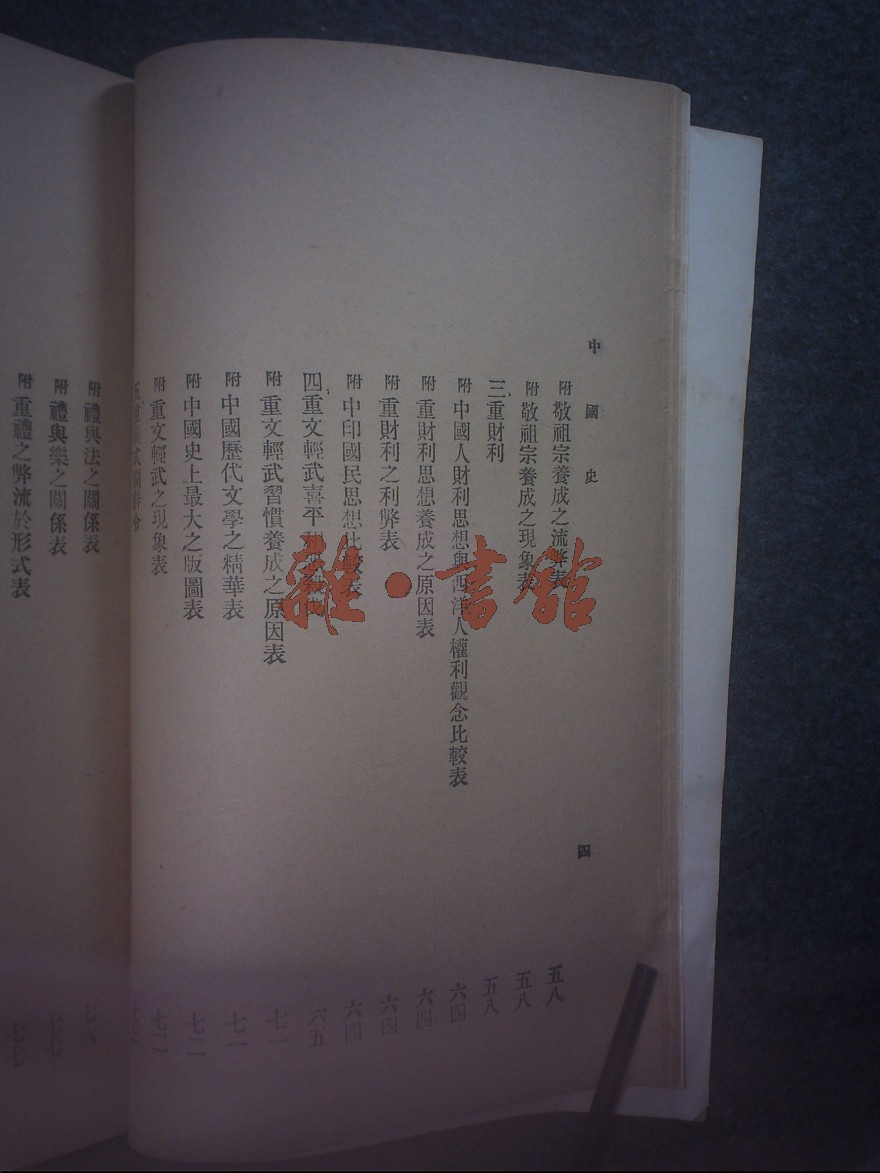 中國史
四
附 敬祖宗養成之流弊表 五八
附 敬祖宗養成之現象表 五八
三、重財利 五八
附 中國人財利思想與西洋人權利觀念比較表 六四
附 重財利思想養成之原因表 六四
附 重財利之利弊表 六四
附 中印國民思想比較表 六四
四、重文輕武喜平 六五
附 重文輕武習慣養成之原因表 七一
附 中國歷代文學之精華表 七一
附 中國史上最大之版圖表 七二
附 重文輕武之現象表 七二
附 禮與法之關係表
附 禮與樂之關係表 七七
附 重禮之弊流於形式表 七七
雜·書館